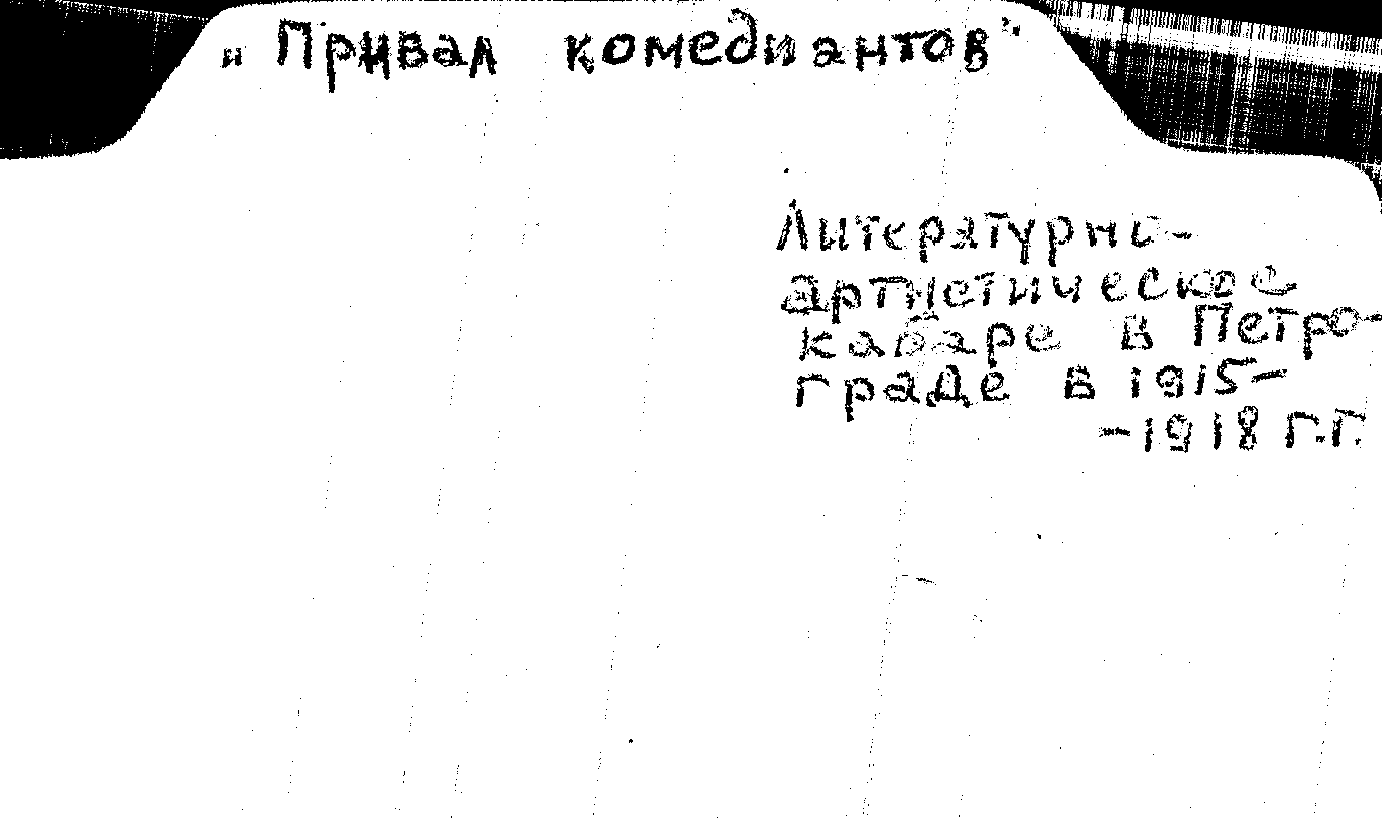 „Привал комедиантов"
Литературно-
артистическое
кабаре в Петро-
граде в 1915-
-1918 г.г.